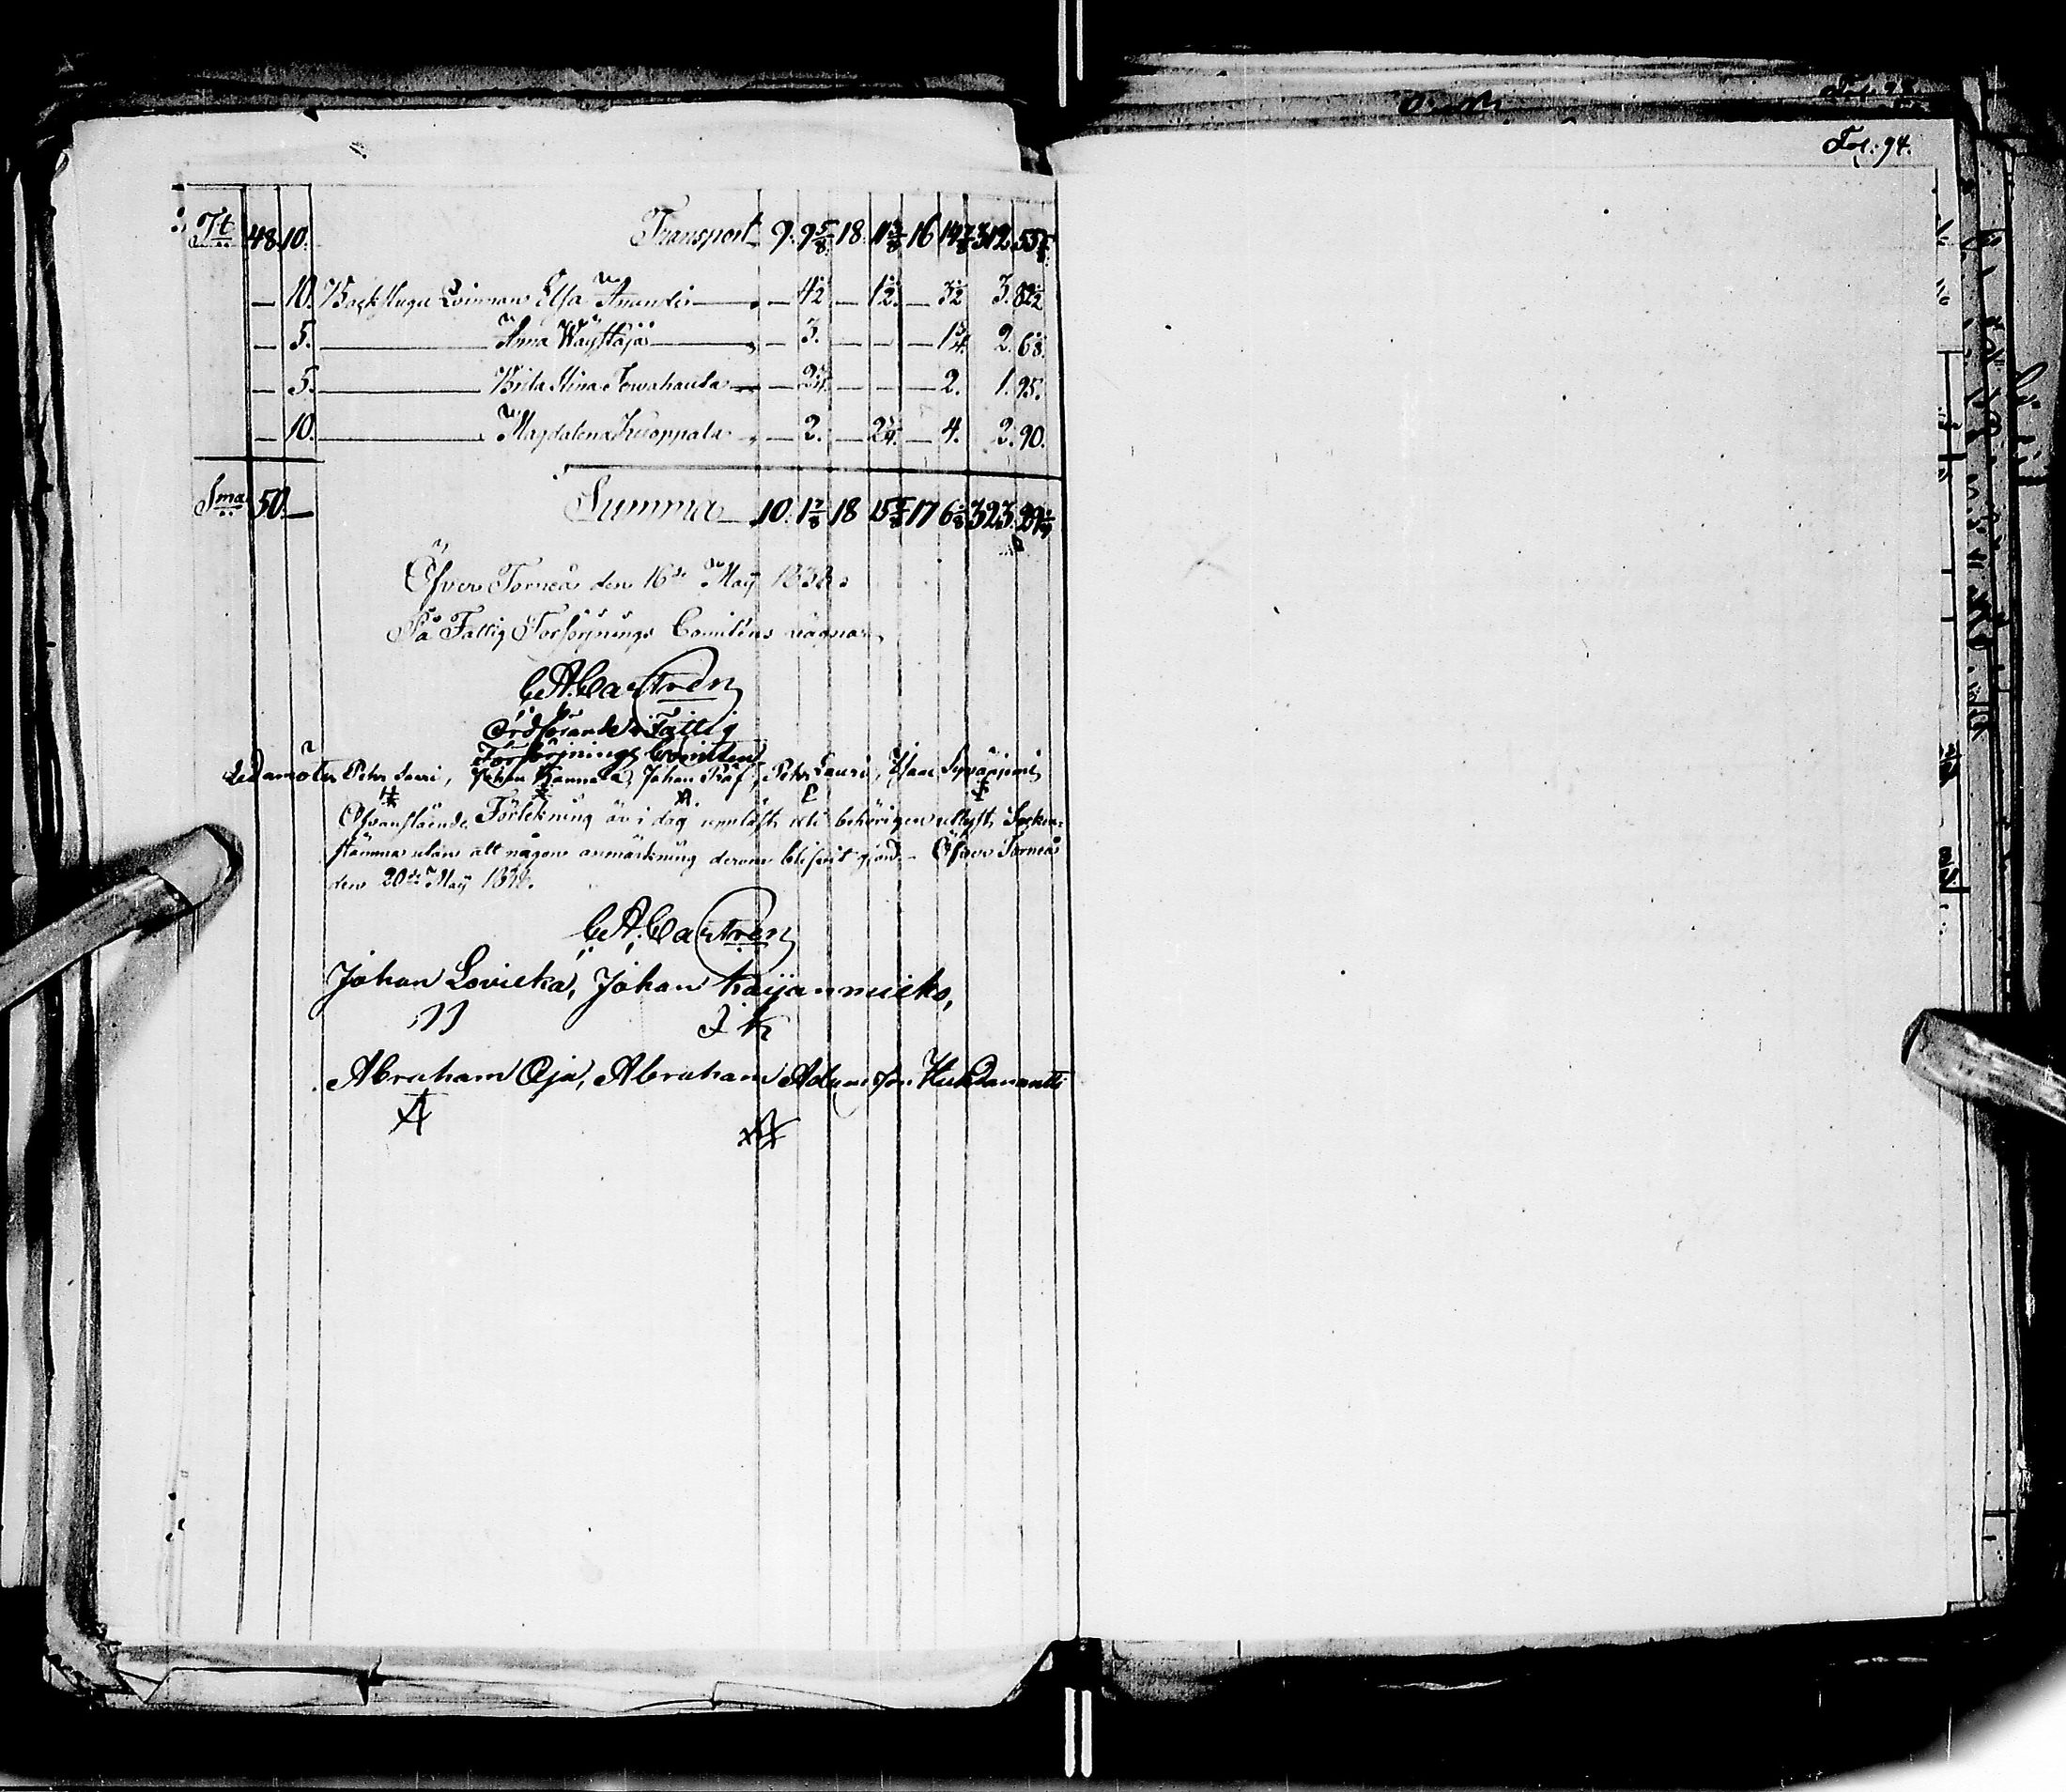 Fol: 94.
Tt 48. 10. Transport 9. 9 5/8 18. 11 3/8 16 14 7/8 312. 55
— 10. Backstugu Qvinnan Elsa — 4 1/2 — 1 1/2 — 3 1/2 3. 82 1/2
— 5. Anna Wäystäjä — 3. — — — 1 3/4 2. 68.
— 5. Brita Stina — — — — 2. 1. 95.
— 10. Magdalena Kuoppala — 2. — 2 1/4 — 4. 2. 90.
Sma 50. — Summa 10. 1 7/8 18 15 5/8 17 6 1/8 323.
Öfver Torneå den 16de Maij
På Fattig Försörjnings Comiténs vägnar
C. A. Castrén
Ordförande i Fattig
Försörjnings Comitéen
Ledamöter Petter Lauri, Johan Kannala, Johan Räf, Petter Lauri, Isaac
Ofvanstående Förtekning är i dag uppläst uti behörigen utlyst Socken-
stämma utan att någon anmärkning derom blifvit gjord. Öfver Torneå
den 20de Maij
C. A. Castrén
Johan Lovikka, Johan
J K
Abraham Oja, Abraham Adamsson
A